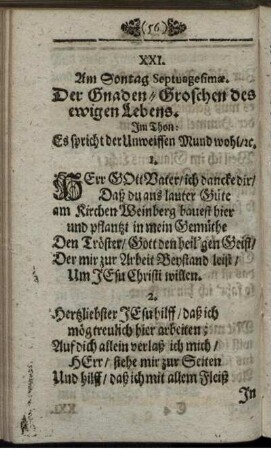 (56)
XXI.
Am Sontag Septuagesimæ.
Der Gnaden-Groschen des
ewigen Lebens.
Im Thon:
Es spricht der Unweissen Mund wohl/ꝛc.
1.
HErr GOtt Vater/ ich dancke dir/
Daß du aus lauter Güte
am Kirchen Weinberg bauest hier
und pflantzt in mein Gemüthe
Den Tröster/ Gott den heil'gen Geist/
Der mir zur Arbeit Beystand leist/
Um JEsu Christi willen.
2.
Hertzliebster JEsu hilff/ daß ich
mög treulich hier arbeiten;
Auf dich allein verlaß ich mich/
HErr/ stehe mir zur Seiten
Und hilff/ daß ich mit allem Fleiß
In